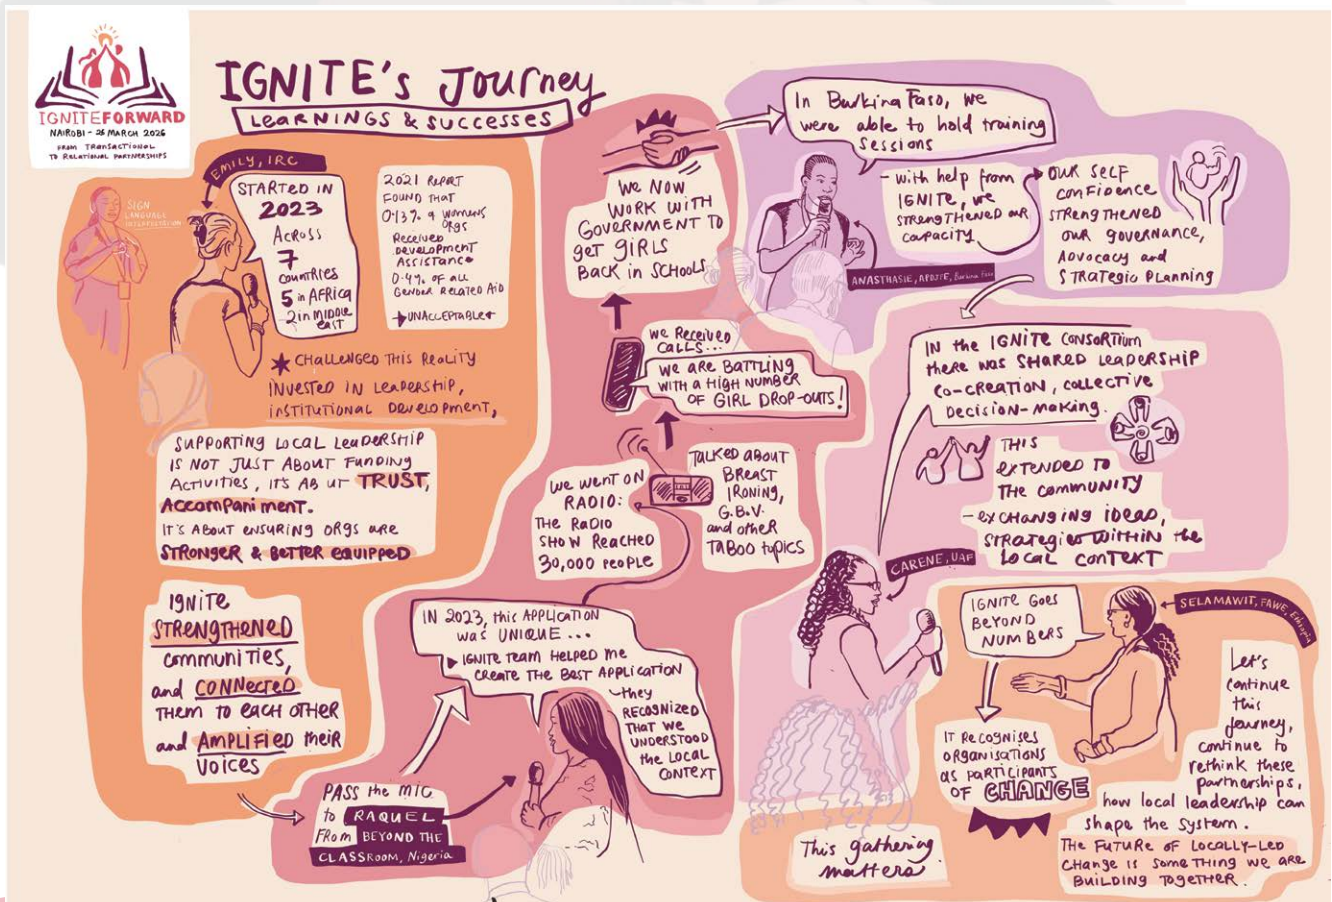 IGNITEFORWARD
NAIROBI - 26 MARCH 2026
FROM TRANSACTIONAL
TO RELATIONAL PARTNERSHIPS
IGNITE's Journey
LEARNINGS & SUCCESSES
EMILY, IRC
SIGN
LANGUAGE
INTERPRETATION
STARTED IN
2023
ACROSS
7
COUNTRIES
5 in AFRICA
2 in MIDDLE
EAST
2021 REPORT
FOUND THAT
0.13% of WOMENS
ORGS
Received
Development
Assistance
0.4% OF ALL
Gender Related Aid
UNACCEPTABLE
CHALLENGED THIS REALITY
INVESTED IN LEADERSHIP,
INSTITUTIONAL DEVELOPMENT,
SUPPORTING LOCAL LEADERSHIP
IS NOT JUST ABOUT FUNDING
ACTIVITIES, IT'S AB UT TRUST,
ACCOMPANIMENT.
IT'S ABOUT ENSURING ORGS ARE
STRONGER & BETTER EQUIPPED
IGNITE
STRENGTHENED
communities,
and CONNected
THEM TO EACH OTHER
and AMPLIFIED their
VOICES
PASS the MIC
to RAQUEL
FROM BEYOND THE
CLASSROOM, Nigeria
IN 2023, this APPLICATION
was UNIQUE ...
IGNITE TEAM HELPED ME
CREATE THE BEST APPLICATION
- they
RECOGNIZED
THAT WE
UNDERSTOOD
the LOCAL
CONTEXT
we WENT ON
RADIO:
THE RADIO
SHOW REACHED
30,000 PEOPLE
TALKED ABOUT
BREAST
IRONING,
G.B.V.
and other
TABOO topics
we Received
CALLS...
WE ARE BATTLING
WITH A HIGH NUMBER
OF GIRL DROP-OUTS!
We NOW
WORK WITH
GOVERNMENT TO
get GIRLS
BACK IN SCHOOLS
In Burkina Faso, we
were able to hold training
sessions
ANASTHASIE, APDJTE, Burkina Faso
- with help from
IGNITE, we
STRENGTHENED our
capacity
OUR SELF
CONFIDENCE
STRENGTHENED
OUR governance,
ADVOCACY and
STRATEGIC PLANNING
IN the IGNITE CONSORTIUM
there was SHARED LEADERSHIP
CO-CREATION, COLLECTIVE
DECISION-MAKING.
THIS
EXTENDED TO
THE COMMUNITY
- EXCHANGING IDEAS,
STRATEGIES WITHIN the
LOCAL CONTEXT
CARENE, UAF
IGNITE GOES
BEYOND
NUMBERS
SELAMAWIT, FAWE, Ethiopia
IT RECOGNISES
ORGANISATIONS
as PARTICIPANTS
OF CHANGE
This gathering
matters
Let's
continue
this
journey,
continue to
rethink these
partnerships,
how local leadership can
shape the system.
THE FUTURE OF LOCALLY-LED
CHANGE IS SOMETHING WE ARE
BUILDING TOGETHER.